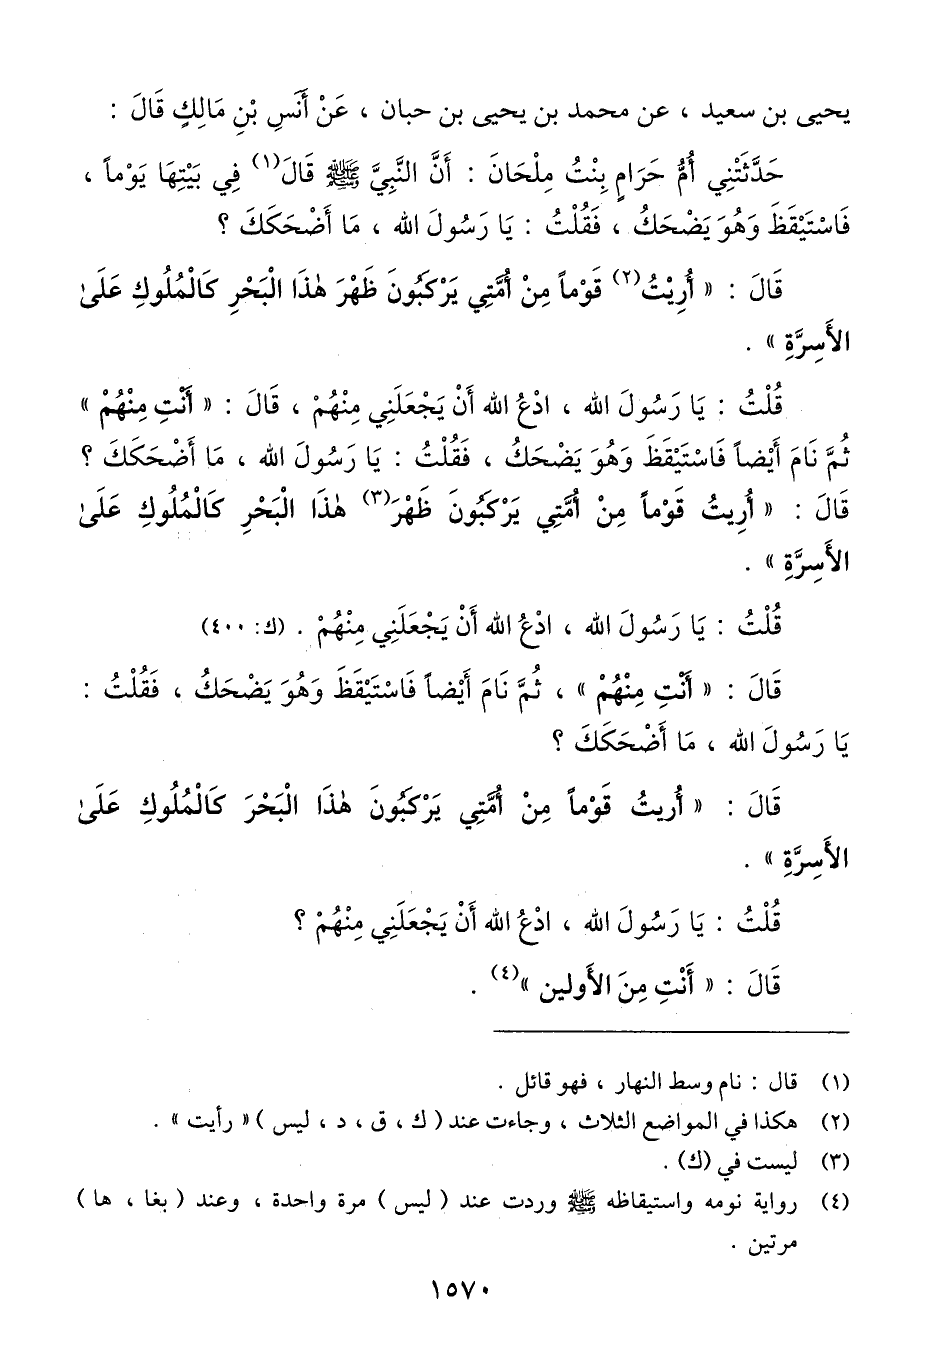 يحيى بن سعيد ، عن محمد بن يحيى بن حبان ، عَنْ أَنَسِ بْنِ مَالِكٍ قَالَ :
حَدَّثَتْنِي أُمُّ حَرَامٍ بِنْتُ مِلْحَانَ : أَنَّ النَّبِيَّ ﷺ قَالَ(١) فِي بَيْتِهَا يَوْماً ،
فَاسْتَيْقَظَ وَهُوَ يَضْحَكُ ، فَقُلْتُ : يَا رَسُولَ الله ، مَا أَضْحَكَكَ ؟
قَالَ : « أُرِيْتُ(٢) قَوْماً مِنْ أُمَّتِي يَرْكَبُونَ ظَهْرَ هٰذَا الْبَحْرِ كَالْمُلُوكِ عَلَىٰ
الأَسِرَّةِ » .
قُلْتُ : يَا رَسُولَ الله ، ادْعُ الله أَنْ يَجْعَلَنِي مِنْهُمْ ، قَالَ : « أَنْتِ مِنْهُمْ »
ثُمَّ نَامَ أَيْضاً فَاسْتَيْقَظَ وَهُوَ يَضْحَكُ ، فَقُلْتُ : يَا رَسُولَ الله ، مَا أَضْحَكَكَ ؟
قَالَ : « أُرِيتُ قَوْماً مِنْ أُمَّتِي يَرْكَبُونَ ظَهْرَ(٣) هٰذَا الْبَحْرِ كَالْمُلُوكِ عَلَىٰ
الأَسِرَّةِ » .
قُلْتُ : يَا رَسُولَ الله ، ادْعُ الله أَنْ يَجْعَلَنِي مِنْهُمْ . (ك: ٤٠٠)
قَالَ : « أَنْتِ مِنْهُمْ » ، ثُمَّ نَامَ أَيْضاً فَاسْتَيْقَظَ وَهُوَ يَضْحَكُ ، فَقُلْتُ :
يَا رَسُولَ الله ، مَا أَضْحَكَكَ ؟
قَالَ : « أُرِيتُ قَوْماً مِنْ أُمَّتِي يَرْكَبُونَ هٰذَا الْبَحْرَ كَالْمُلُوكِ عَلَىٰ
الأَسِرَّةِ » .
قُلْتُ : يَا رَسُولَ الله ، ادْعُ الله أَنْ يَجْعَلَنِي مِنْهُمْ ؟
قَالَ : « أَنْتِ مِنَ الأَولين »(٤) .
(١) قال : نام وسط النهار ، فهو قائل .
(٢) هكذا في المواضع الثلاث ، وجاءت عند ( ك ، ق ، د ، ليس ) « رأيت » .
(٣) ليست في (ك) .
(٤) رواية نومه واستيقاظه ﷺ وردت عند ( ليس ) مرة واحدة ، وعند ( بغا ، ها )
مرتين .
١٥٧٠